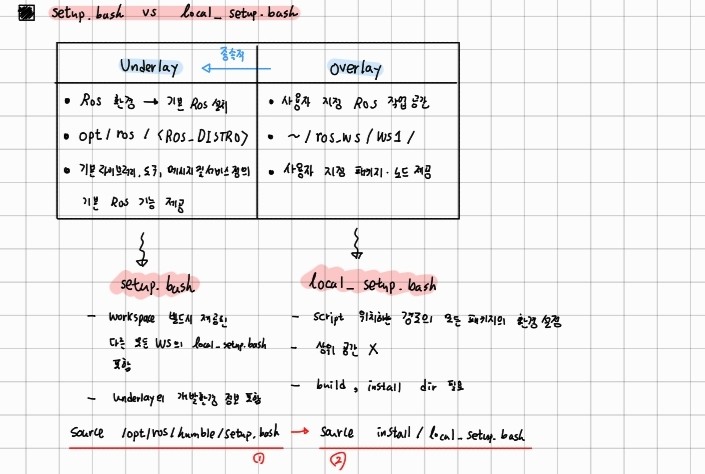 setup.bash vs local_setup.bash
종속적
Underlay
Overlay
• ROS 환경 → 기본 ROS 설치
• opt/ros/<ROS_DISTRO>
• 기본 라이브러리, 도구, 메시지 및 서비스 정의
기본 ROS 기능 제공
• 사용자 지정 ROS 작업 공간
• ~/ros_ws/ws1/
• 사용자 지정 패키지·노드 제공
setup.bash
- workspace 빌드시 제공된
다른 모든 WS의 local_setup.bash
포함
- underlay의 개발환경 정보 포함
local_setup.bash
- script 위치하는 경로의 모든 패키지의 환경 설정
- 상위 공간 X
- build, install dir 필요
source /opt/ros/humble/setup.bash → source install/local_setup.bash
① ②